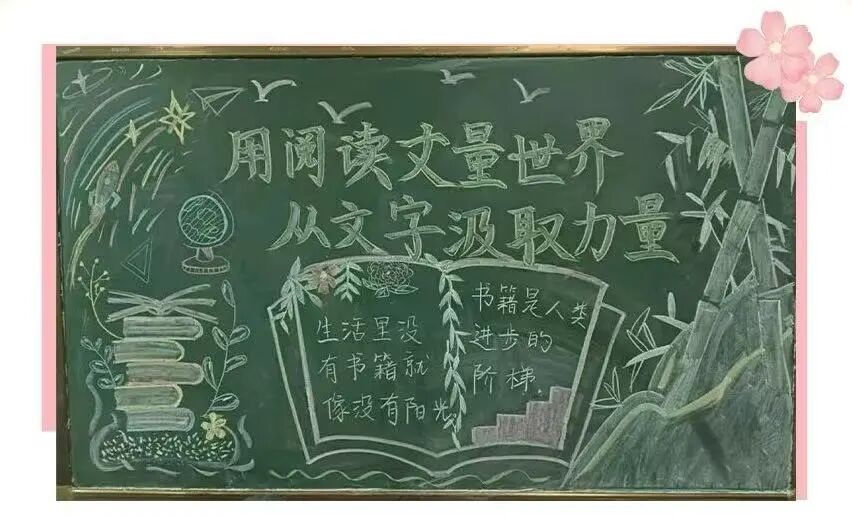 用阅读丈量世界
从文字汲取力量
生活里没
有书籍就
像没有阳光
书籍是人类
进步的
阶梯